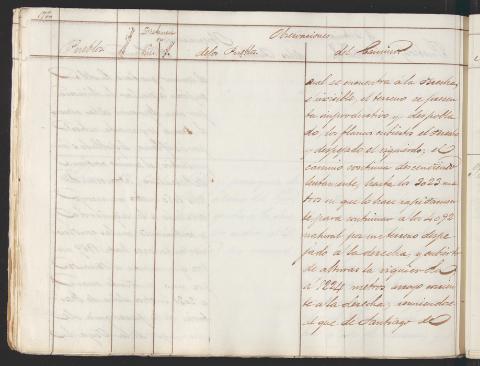 Observaciones
Pueblos
Distancia
en
de los Pueblos
del Camino
cual se encuentra a la derecha,
e invisible, el terreno se presen
ta improductivo y despobla
do, los flancos cubierto el derecho
y despejado el izquierdo; el
camino continua descendiendo
lentamente, hasta los 3023 me
tros en que lo hace rapidamen
te para continuar a los 4092
natural por un terreno despe
jado á la derecha, y cubierto
de alturas la izquierda
á 7224 metros arroyo
te a la derecha; reuniendose
el que de Santiago de